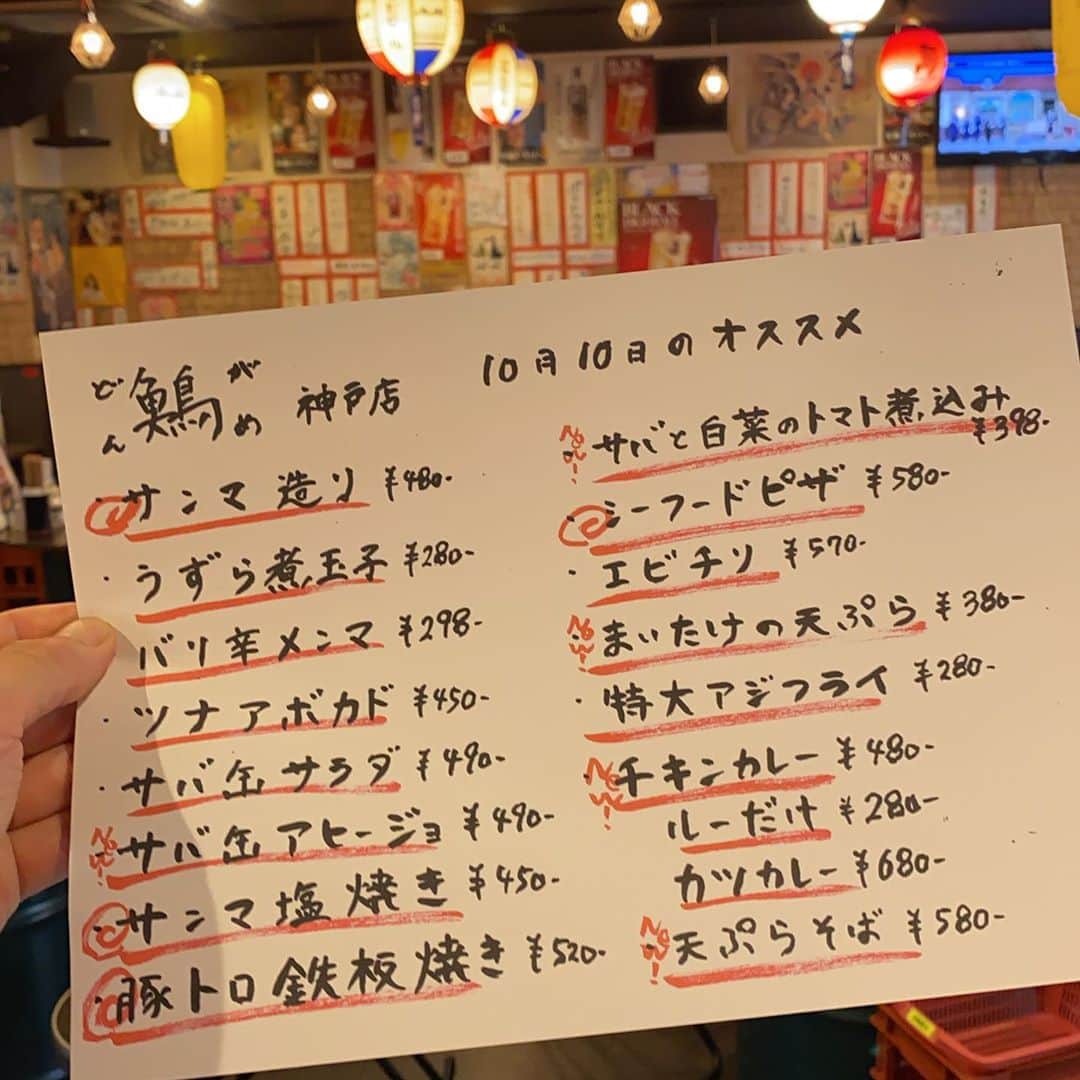 どんがめ 神戸店
10月10日のオススメ
・サンマ造り ¥480-
・うずら煮玉子 ¥280-
・バリ辛メンマ ¥298-
・ツナアボカド ¥450-
・サバ缶サラダ ¥490-
New! ・サバ缶アヒージョ ¥490-
・サンマ塩焼き ¥450-
・豚トロ鉄板焼き ¥520-
New! サバと白菜のトマト煮込み
¥398-
・シーフードピザ ¥580-
・エビチリ ¥570-
New! まいたけの天ぷら ¥380-
・特大アジフライ ¥280-
New! チキンカレー ¥480-
ルーだけ ¥280-
カツカレー ¥680-
New! 天ぷらそば ¥580-
BLACK